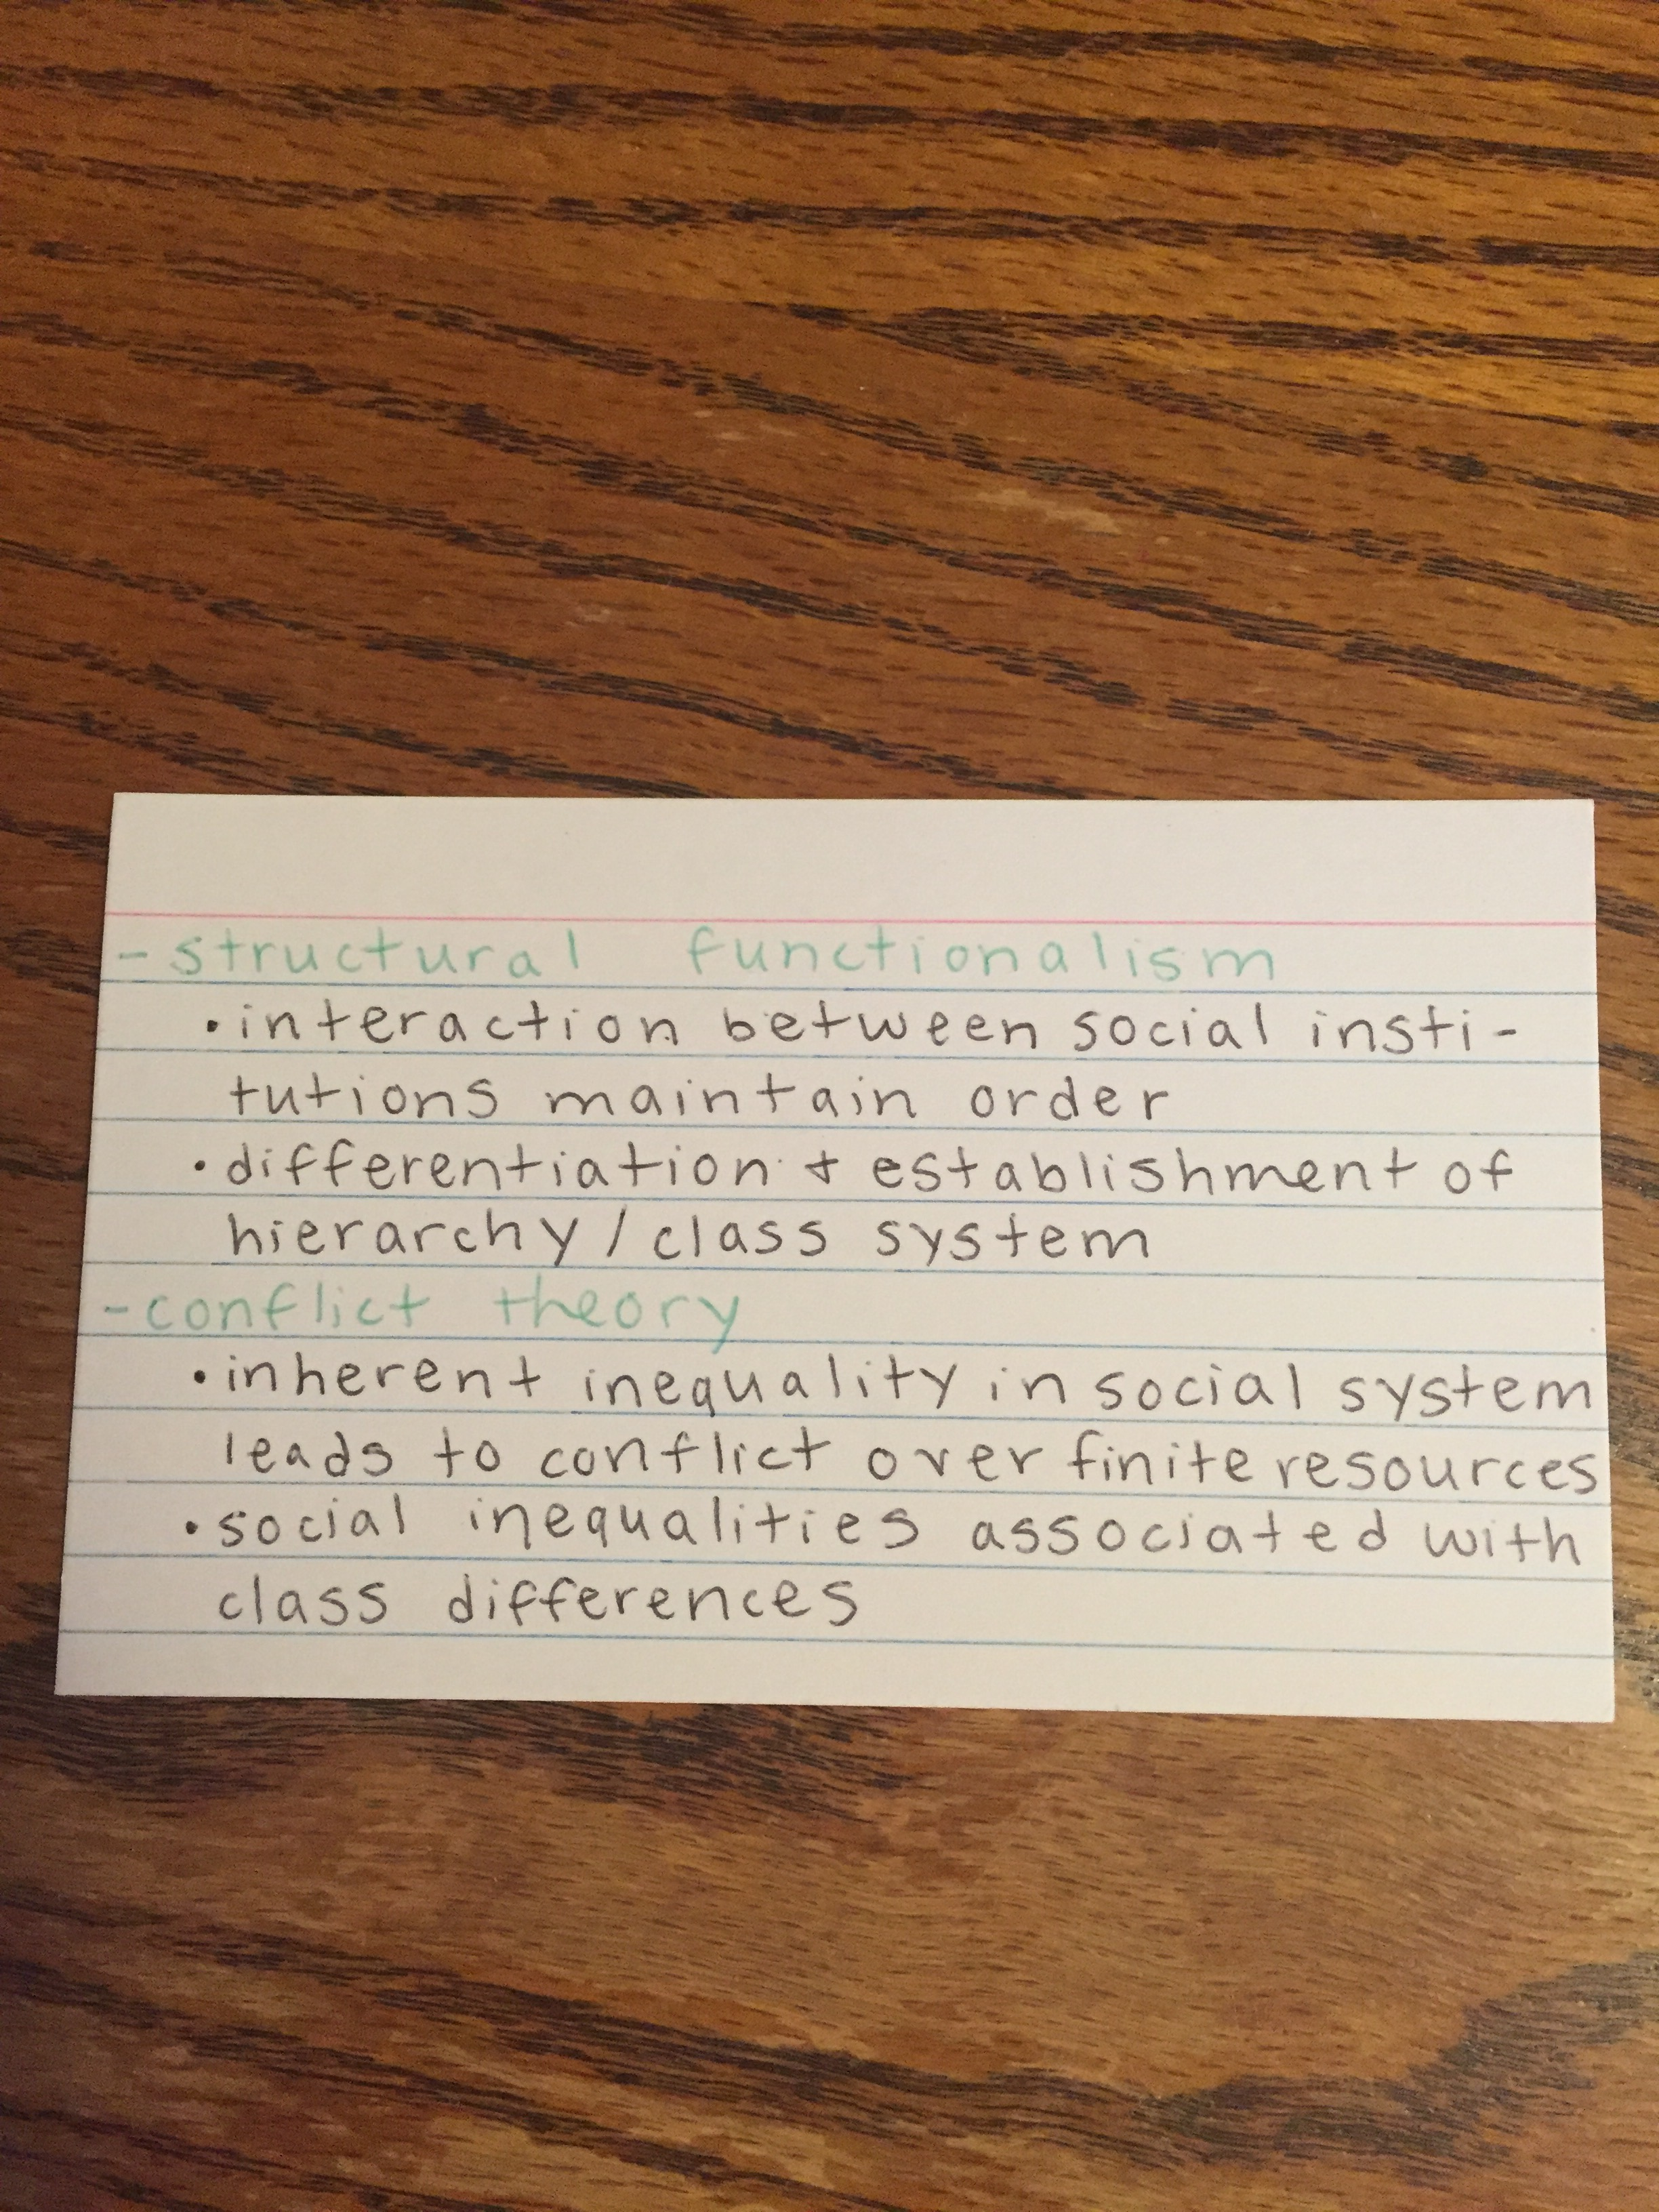 - structural functionalism
• interaction between social insti-
tutions maintain order
• differentiation + establishment of
hierarchy / class system
- conflict theory
• inherent inequality in social system
leads to conflict over finite resources
• social inequalities associated with
class differences